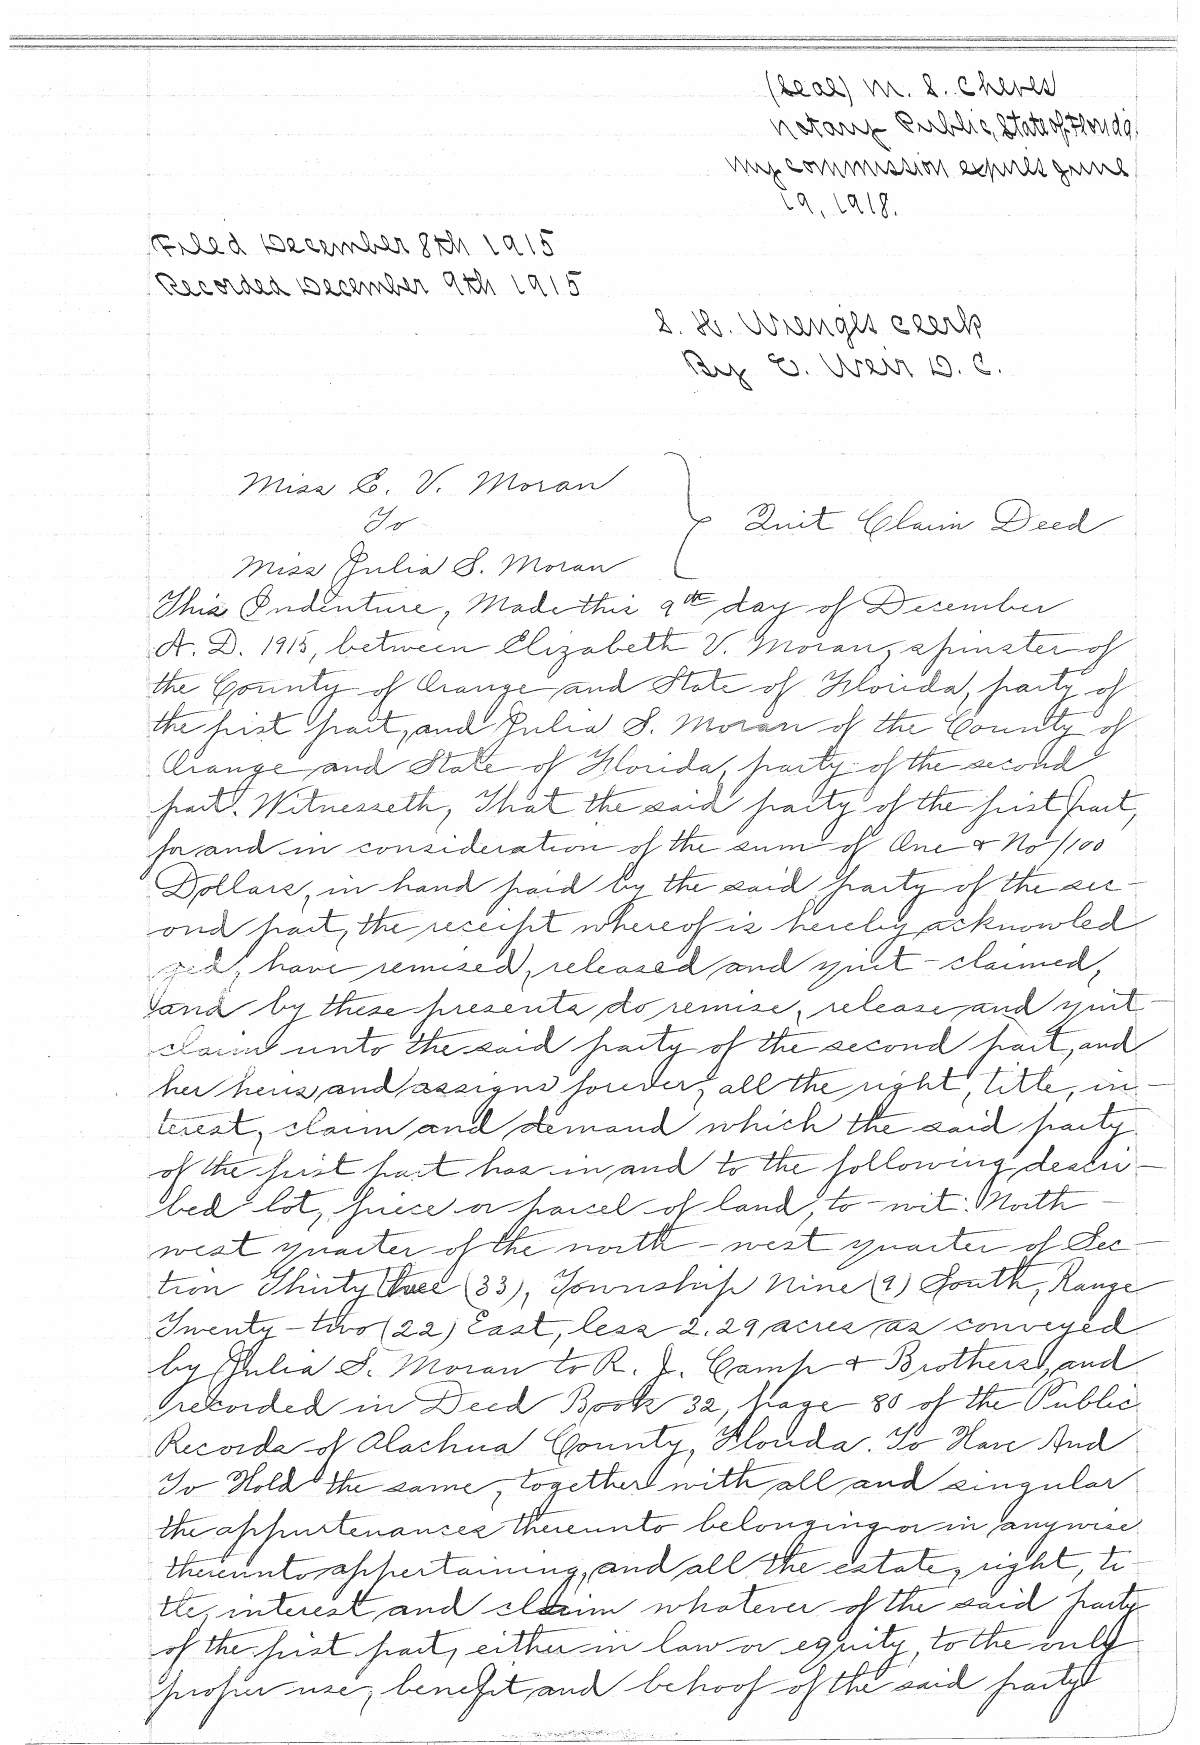 (Seal) M. S. Cheves
Notary Public, State of Florida,
My commission expires June
19, 1918.
Filed December 8th 1915
Recorded December 9th 1915
S. H. Wienges Clerk
By E. Weir D. C.
Miss E. V. Moran
To
Quit Claim Deed
Miss Julia S. Moran
This Indenture, Made this 9th day of December
A. D. 1915, between Elizabeth V. Moran, spinster of
the County of Orange and State of Florida, party of
the first part, and Julia S. Moran of the County of
Orange and State of Florida, party of the second
part. Witnesseth, That the said party of the first part,
for and in consideration of the sum of One & No/100
Dollars, in hand paid by the said party of the sec-
ond part, the receipt whereof is hereby acknowled
ged, have remised, released and quit-claimed,
and by these presents do remise, release and quit-
claim unto the said party of the second part, and
her heirs and assigns forever, all the right, title, in-
terest, claim and demand which the said party
of the first part has in and to the following descri-
bed lot, piece or parcel of land, to-wit: North-
west quarter of the north-west quarter of Sec-
tion Thirty three (33), Township Nine (9) South, Range
Twenty-two (22) East, less 2.29 acres as conveyed
by Julia S. Moran to R. J. Camp & Brothers, and
recorded in Deed Book 32, page 80 of the Public
Records of Alachua County, Florida. To Have And
To Hold the same, together with all and singular
the appurtenances thereunto belonging or in anywise
thereunto appertaining, and all the estate, right, ti-
tle, interest and claim whatever of the said party
of the first part, either in law or equity, to the only
proper use, benefit and behoof of the said party